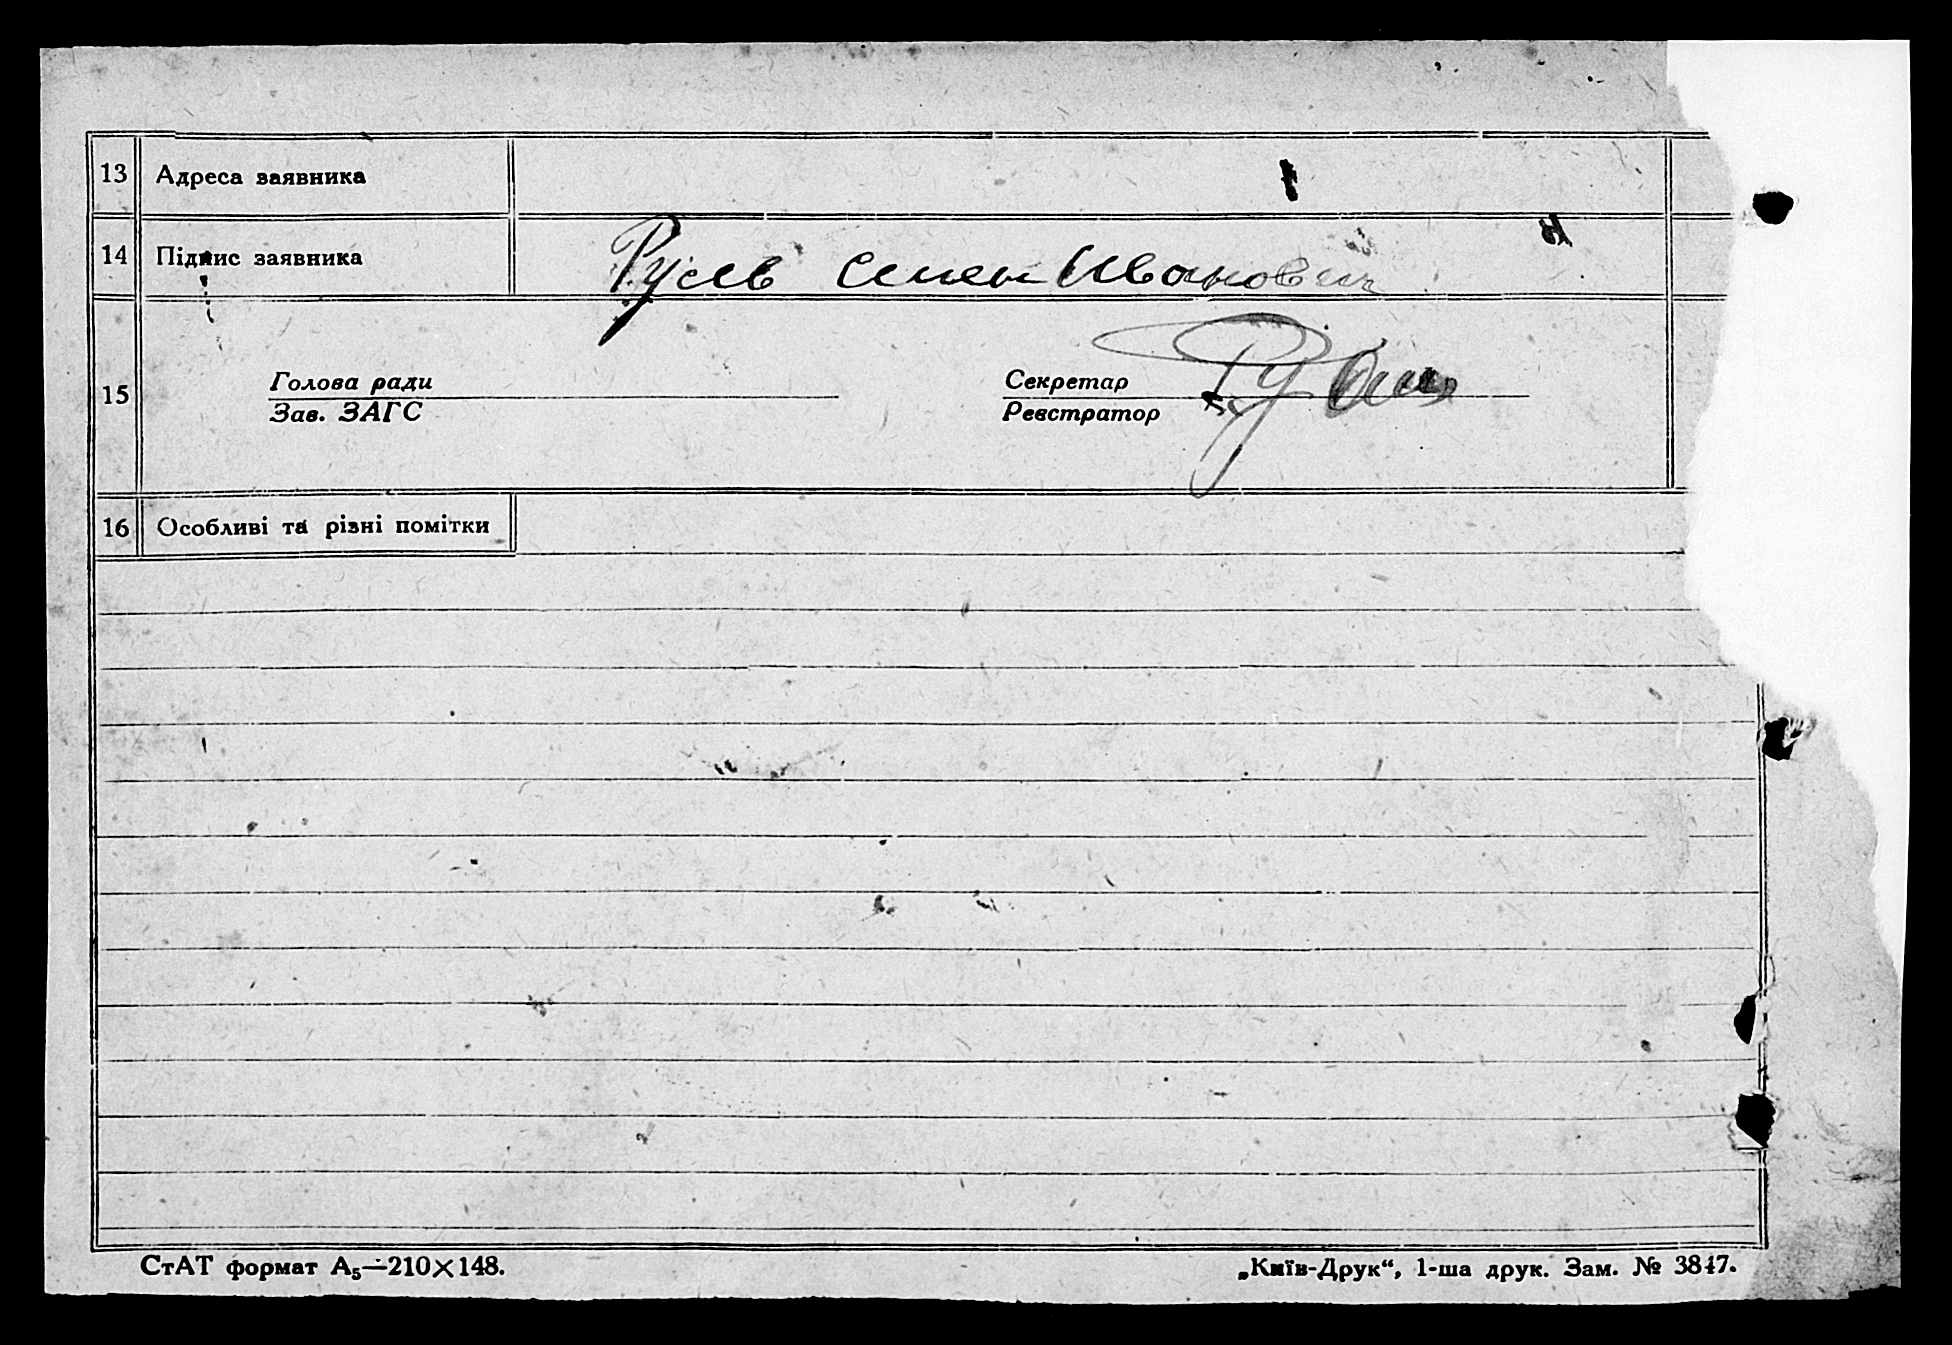 13 Адреса заявника
14 Підпис заявника Русев Семен Иванович
Голова ради Секретар
15
Зав. ЗАГС Реєстратор
16 Особливі та різні помітки
СтАТ формат А₅—210×148. „Київ-Друк“, 1-ша друк. Зам. № 3847.